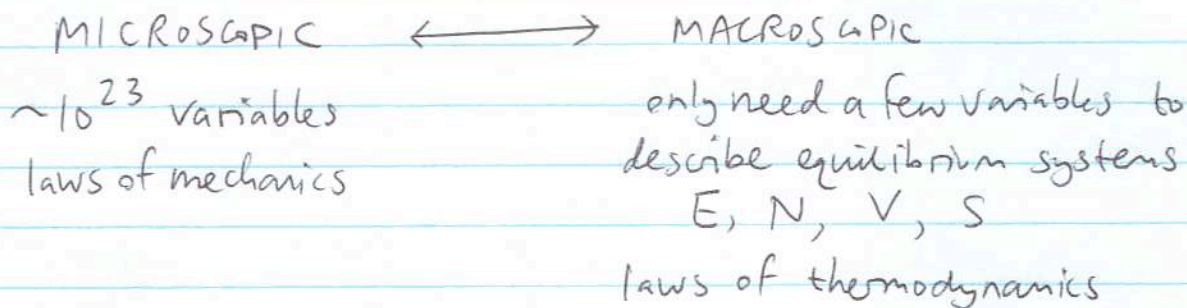 MICROSCOPIC ⟷ MACROSCOPIC
~10²³ variables
laws of mechanics
only need a few variables to
describe equilibrium systems
E, N, V, S
laws of thermodynamics